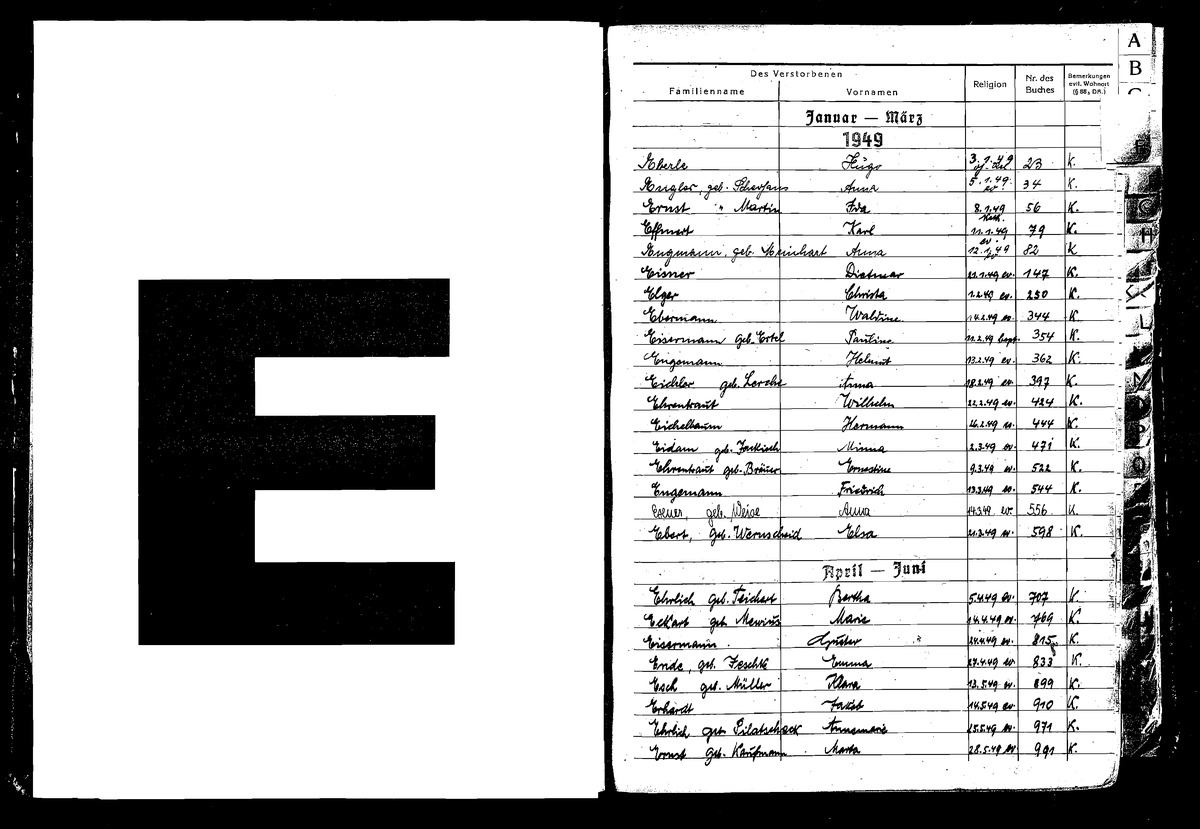 E
A
B
C
E
G
H
K
L
M
O
Des Verstorbenen
Familienname Vornamen Religion Nr. des Buches Bemerkungen evtl. Wohnort (§ 88, DA.)
Januar — März
1949
Eberle Hugo 3.1.49 23 K.
Engler, geb. Anna 5.1.49 ev. 34 K.
Ernst " Martin Frida 8.1.49 kath. 56 K.
Effmert Karl 11.1.49 ev. 79 K.
Engmann, geb. Meinhart Anna 12.1.49 ev. 82 K
Eisner Dietmar 21.1.49 ev. 147 K.
Elger Christa 1.2.49 ev. 250 K.
Ebermann 14.2.49 ev. 344 K.
Eisermann geb. Ertel Pauline 11.2.49 354 K.
Engemann Helmut 13.2.49 ev. 362 K.
Eichler geb. Lerche Anna 18.2.49 ev. 397 K.
Ehrentraut Wilhelm 22.2.49 ev. 424 K.
Eichelbaum Hermann 26.2.49 ev. 444 K.
Eidam geb. Jackisch Minna 2.3.49 ev. 471 K.
Ehrentraut geb. Bräuer Ernestine 9.3.49 ev. 522 K.
Engemann Friedrich 13.3.49 ev. 544 K.
Exner, geb. Weise Anna 14.3.49 ev. 556 K.
Ebert, geb. Wernscheid Elsa 21.3.49 ev. 598 K.
April — Juni
Ehrlich geb. Teichert Bertha 5.4.49 ev. 707 K.
Eckart geb. Mewius Marie 14.4.49 ev. 769 K.
Eisermann Gustav 24.4.49 ev. 815 K.
Ende, geb. Jeschke Emma 27.4.49 ev. 833 K.
Esch geb. Müller Klara 13.5.49 ev. 899 K.
Erhardt Jakob 14.5.49 ev. 910 K.
Ehrlich geb. Pilatscheck Annemarie 25.5.49 ev. 971 K.
Ernst geb. Kaufmann Marta 28.5.49 ev 991 K.